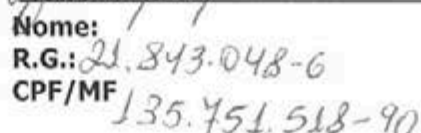 Nome:
R.G.: 21.843.048-6
CPF/MF 135.751.518-90